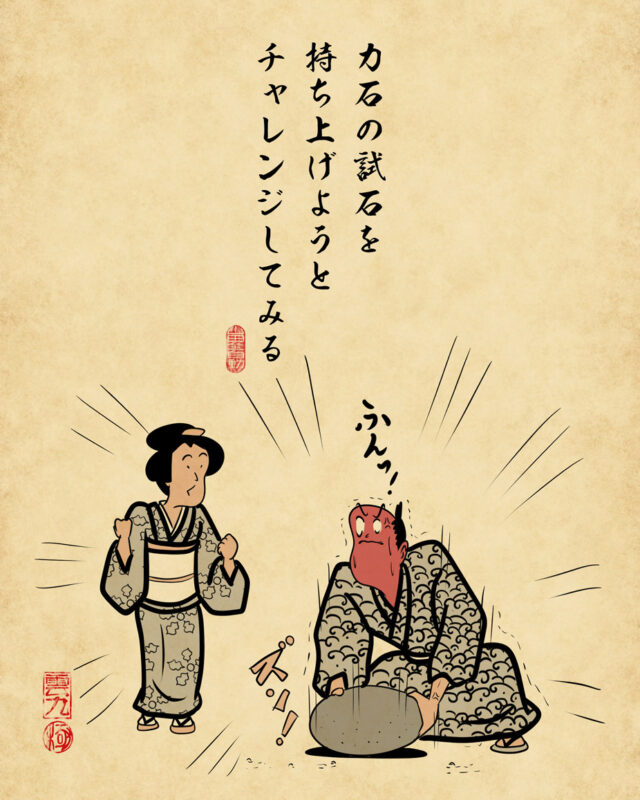 力石の試石を
持ち上げようと
チャレンジしてみる
ふんっ!
ズン!